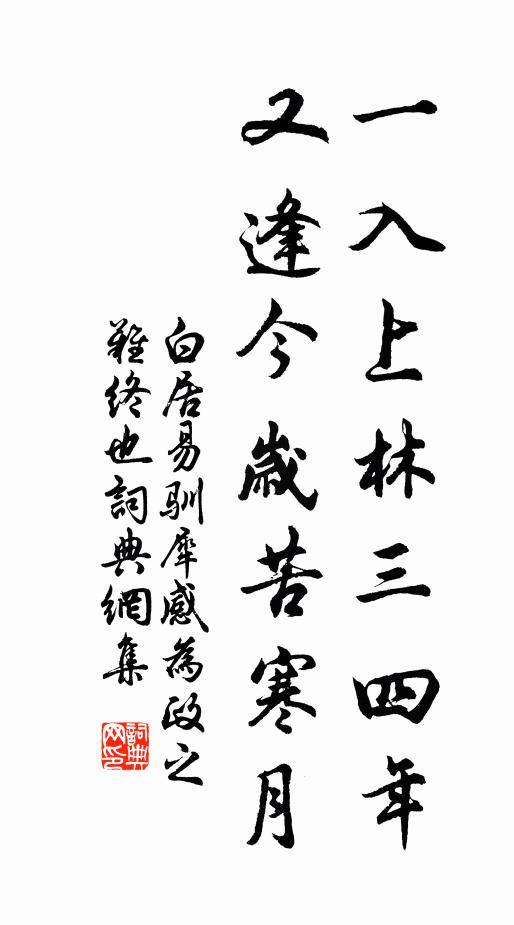 一入上林三四年
又逢今歲苦寒月
白居易馴犀感為政之
難終也詞典網集
詞典
网印